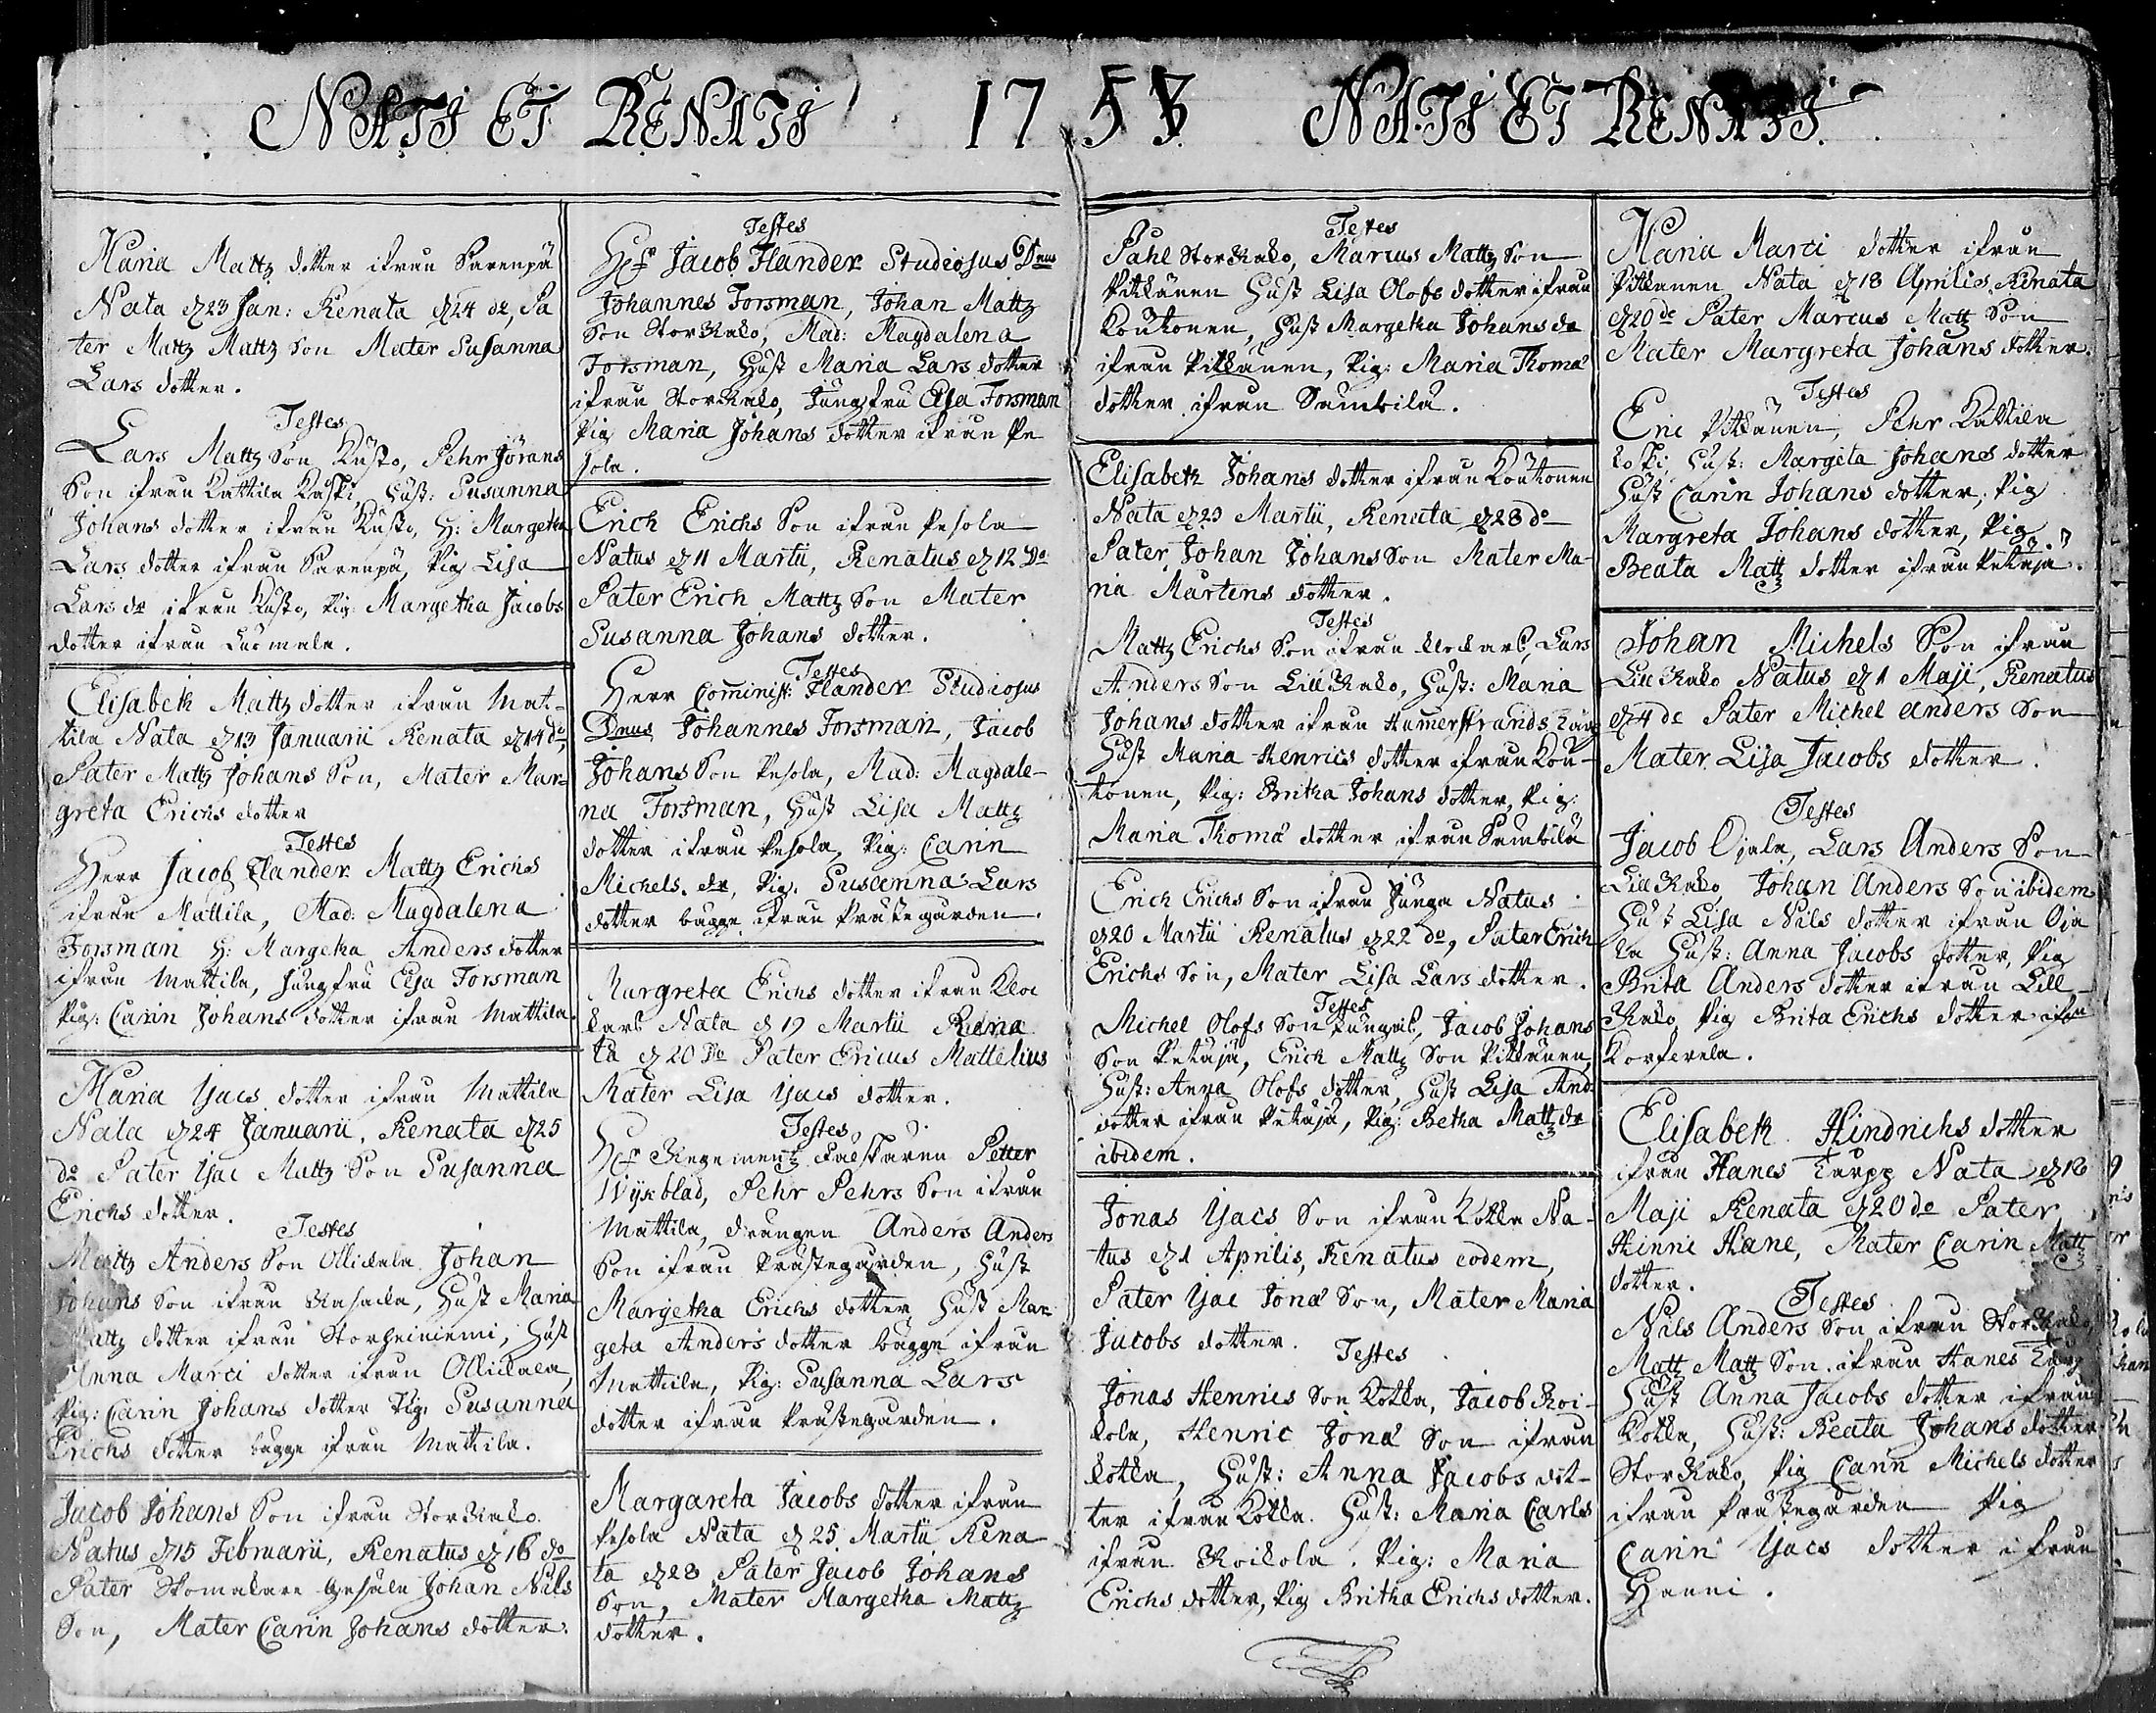 NATI ET RENATI 1753 NATI ET RENATI
Maria Mattz dotter ifrån Sarenpä
Nata d 23 Jan: Renata d 24 do, Pa
ter Mattz Mattz Son Mater Susanna
Lars dotter.
Testes
Lars Mattz Son Kusto, Pehr Jörans
Son ifrån Kattila Kåski, Hust: Susanna
Johans dotter ifrån Kusto, H: Margetha
Lars dotter ifrån Sarenpä, Pig Lisa
Lars dr ifrån Kusto, Pig: Margetha Jacobs
dotter ifrån Luomala.
Elisabeth Mattz dotter ifrån Mat-
tila Nata d 13 Januarii Renata d 14 do,
Pater Mattz Johans Son, Mater Mar-
greta Erichs dotter
Testes
Herr Jacob Flander Mattz Erichs
ifrån Mattila, Mad: Magdalena
Forsman H: Margetha Anders dotter
ifrån Mattila, Jungfru Elsa Forsman
Pig: Carin Johans dotter ifrån Mattila.
Maria Ysacs dotter ifrån Mattila
Nata d 24 Januarii, Renata d 25
do Pater Ysac Mattz Son Susanna
Erichs dotter.
Testes
Mattz Anders Son Ollickala Johan
Johans Son ifrån, Hust Maria
Mattz dotter ifrån Storheiniemi, Hust
Anna Marci dotter ifrån Ollickala,
Pig: Carin Johans dotter Pig: Susanna
Erichs dotter bägge ifrån Mattila.
Jacob Johans Son ifrån StorRalo.
Natus d 15 Februarii, Renatus d 16 do
Pater Skomakare Gesäln Johan Nils
Son, Mater Carin Johans dotter.
Testes
Her Jacob Flander Studiosus Dnus
Johannes Forsman, Johan Mattz
Son StorRalo, Mad: Magdalena
Forsman, Hust Maria Lars dotter
ifrån StorRalo, Jungfru Elsa Forsman
Pig Maria Johans dotter ifrån Pe
sola.
Erich Erichs Son ifrån Pesola
Natus d 11 Martii, Renatus d 12 Do
Pater Erich Mattz Son Mater
Susanna Johans dotter.
Testes
Herr Cominist: Flander Studiosus
Dnus Johannes Forsman, Jacob
Johans Son Pesola, Mad: Magdale-
na Forsman, Hust Lisa Mattz
dotter ifrån Pesola, Pig: Carin
Michels dr, Pig. Susanna Lars
dotter bägge ifrån Prästegården.
Margreta Erichs dotter ifrån Kloc
karls Nata d 19 Martii Rena
ta d 20 Do Pater Ericus Mattelius
Mater Lisa Ysacs dotter.
Testes
Her Regementz Fältskären Petter
Wijkblad, Pehr Pehrs Son ifrån
Mattila, drängen Anders Anders
Son ifrån Prästegården, Hust
Margetha Erichs dotter Hust Mar
geta Anders dotter bägge ifrån
Mattila, Pig: Susanna Lars
dotter ifrån Prästegården.
Margareta Jacobs dotter ifrån
Pesola Nata d 25 Martii Rena
ta d 28 Pater Jacob Johans
Son, Mater Margetha Mattz
dotter.
Testes
Påhl StorRalo, Marcus Mattz Son
Pitkänen Hust Lisa Olofs dotter ifrån
Koukonen, Hust Margetha Johans dr
ifrån Pitkänen, Pig: Maria Thomæ
dotter ifrån Sambila.
Elisabeth Johans dotter ifrån Koukonen
Nata d 23 Martii, Renata d 28 do
Pater Johan Johans Son Mater Ma-
ria Martens dotter.
Testes
Mattz Erichs Son ifrån Klockars, Lars
Anders Son LillRalo, Hust: Maria
Johans dotter ifrån Hamerstrands
Hust Maria Henrics dotter ifrån Kou-
konen, Pig: Britha Johans dotter, Pig:
Maria Thomæ dotter ifrån Sambila
Erich Erichs Son ifrån Junga Natus
d 20 Martii Renatus d 22 do, Pater Erich
Erichs Son, Mater Lisa Lars dotter.
Testes
Michel Olofs Son, Jacob Johans
Son Petäjä, Erich Mattz Son Pitkänen,
Hust: Anna Olofs dotter, Hust Lisa And:
dotter ifrån Petäjä, Pig: Betha Mattz dr
ibidem.
Jonas Ysacs Son ifrån Kotka Na-
tus d 1 Aprilis, Renatus eodem,
Pater Ysac Jonæ Son, Mater Maria
Jacobs dotter.
Testes
Jonas Henrics Son Kotka, Jacob Roi-
kola, Henric Jonæ Son ifrån
Kotka, Hust: Anna Jacobs dot-
ter ifrån Kotka. Hust: Maria Carls
ifrån Roikola. Pig: Maria
Erichs dotter, Pig Britha Erichs dotter.
Maria Marci dotter ifrån
Pitkänen Nata d 18 Aprilis, Renata
d 20 do Pater Marcus Mattz Son
Mater Margreta Johans dotter.
Testes
Eric Pitkänen, Pehr Kattila
koski, Hust: Margeta Johans dotter
Hust Carin Johans dotter, Pig
Margreta Johans dotter, Pig
Beata Mattz dotter ifrån Petäjä.
Johan Michels Son ifrån
LillRalo Natus d 1 Maji, Renatus
d 4 do Pater Michel Anders Son
Mater Lisa Jacobs dotter.
Testes
Jacob Ojala, Lars Anders Son
LillRalo, Johan Anders Son ibidem
Hust Lisa Nils dotter ifrån Oja
la Hust: Anna Jacobs dotter, Pig
Brita Anders dotter ifrån Lill-
Ralo, Pig Brita Erichs dotter ifrån
Korfvela.
Elisabeth Hindrichs dotter
ifrån Hanes Torpp Nata d 18
Maji Renata d 20 do Pater
Hinni Hane, Mater Carin Mattz
dotter.
Testes
Nils Anders Son ifrån StorRalo,
Mattz Mattz Son ifrån Hanes Torp
Hust Anna Jacobs dotter ifrån
Kotka, Hust: Beata Johans dotter
StorRalo, Pig Carin Michels dotter
ifrån Prästegården Pig
Carin Ysacs dotter ifrån
Hanni.